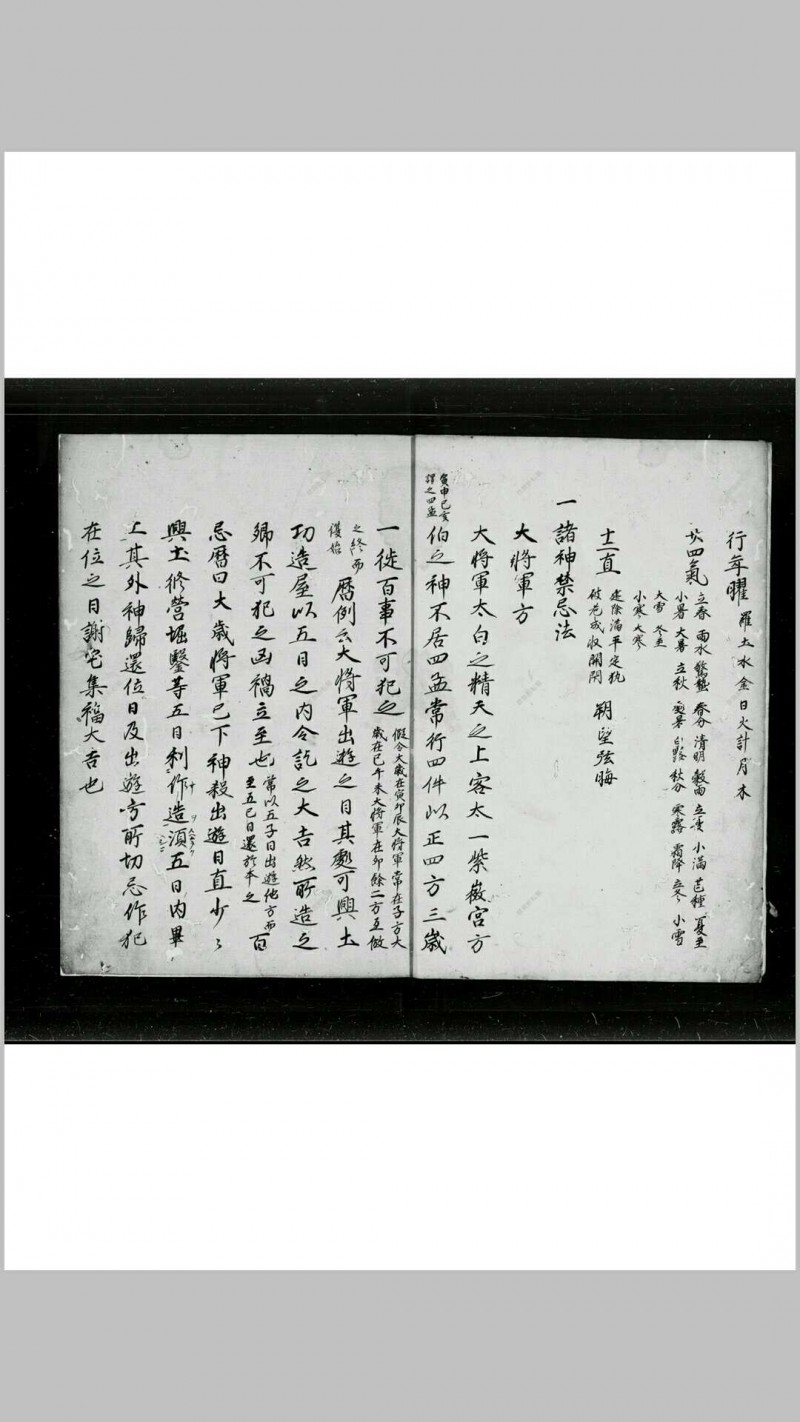 行年曜 羅土水金日火計月木
廿四氣 立春 雨水 驚蟄 春分 清明 穀雨 立夏 小滿 芒種 夏至
小暑 大暑 立秋 處暑 白露 秋分 寒露 霜降 立冬 小雪
大雪 冬至
小寒 大寒
十二直 建除滿平定執
破危成收開閇 朔望弦晦
一諸神禁忌法
大將軍方
大將軍太白之精天之上客太一紫薇宮方
伯之神不居四孟常行四仲以正四方三歲
寅申巳亥
謂之四孟
一徙百事不可犯之 假令大歲在寅卯辰大將軍常在子方大
歲在巳午未大將軍在卯餘二方互做
之終而
復始 曆例云大將軍出遊之日其處可興土
功造屋以五日之內令訖之大吉然所造之
鄉不可犯之凶禍立至也 常以五子日出遊他方而
至五巳日還於本之 百
忌曆曰大歲將軍已下神殺出遊日直少々
興土修營堀鑿等五日利作造須五日內畢
上其外神歸還位日及出遊方所切忌作犯
在位之日謝宅集福大吉也